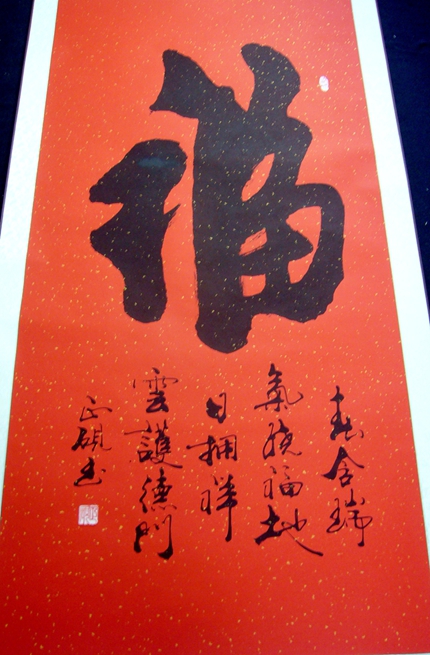 福
春含瑞
氣繞福地
日擁祥
雲護德門
正碩書